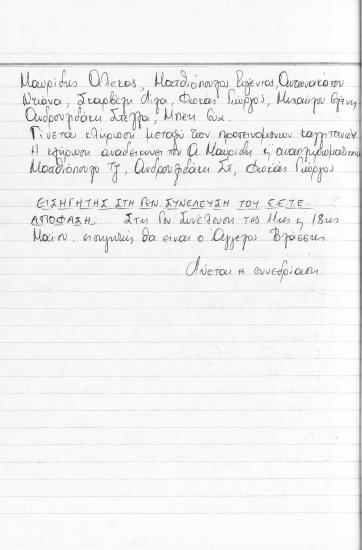 Μαυρίδης Αλέκος, Ματθιόπουλος Ευγένιος, Αντωνακάτου
Ντιάνα, Σκαρβέλη Λίζα, Φωκάς Γιώργος, Μπλαύρα Ελένη,
Ανδρουλιδάκη Στέλλα, Μπέη Εύα.
Γίνεται κλήρωση μεταξύ των προτεινομένων καλλιτεχνών.
Η κλήρωση αναδεικνύει τον Α. Μαυρίδη κ' αναπληρωματικούς
Ματθιόπουλο Ανδρουλιδάκη Στ, Φωκάς Γιώργος
ΕΙΣΗΓΗΤΗΣ ΣΤΗ ΓΕΝ. ΣΥΝΕΛΕΥΣΗ ΤΟΥ Ε.Ε.Τ.Ε.
ΑΠΟΦΑΣΗ: Στη Γεν Συνέλευση της 11ης κ' 18ης
Μαΐου εισηγητής θα είναι ο Άγγελος Βλάσσης
Λύεται η συνεδρίαση.